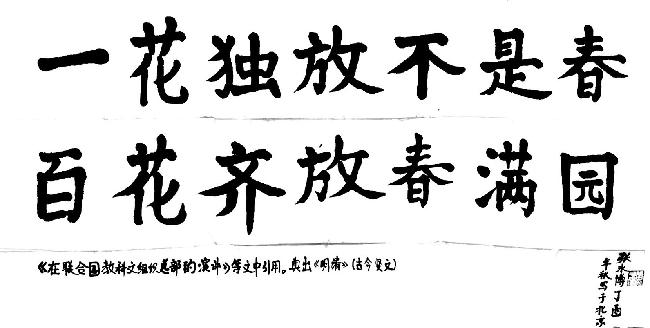 一花独放不是春
百花齐放春满园
《在联合国教科文组织总部的演讲》等文中引用。典出《明清》(古今贤文)
丁酉
年秋写于北京